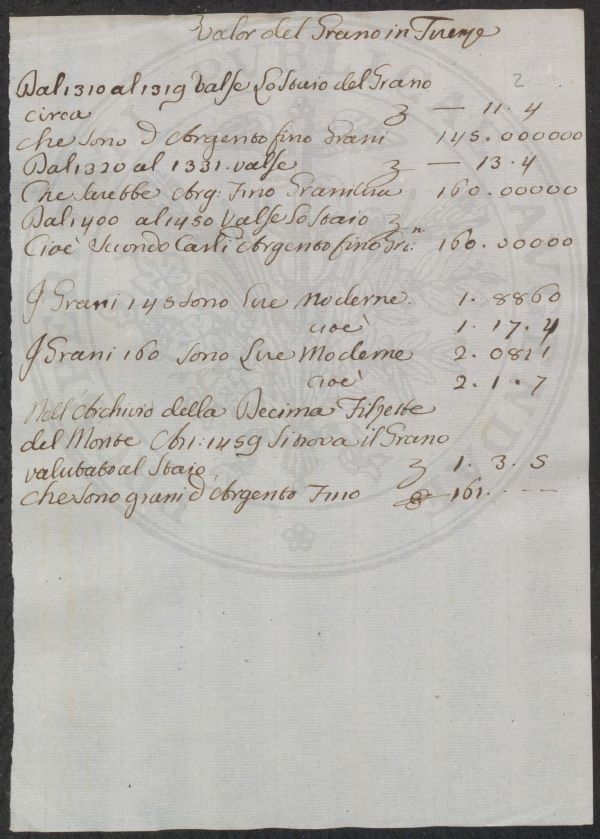 Valor del Grano in Firenze
2
Dal 1310 al 1319 Valse Lo Staio del Grano
circa £ — 11. 4
che sono d'Argento fino Grani 145. 000000
Dal 1320 al 1331. valse £ — 13. 4
Che sarebbe Arg: Fino Grani 160. 00000
Dal 1400 al 1450 Valse Lo Staio £
Cioè Secondo Carli d'Argento fino Gr:ⁿⁱ 160. 00000
I Grani 145 sono Lire Moderne. 1. 8860
cioè 1. 17. 4
I Grani 160 sono Lire Moderne 2. 0811
cioè 2. 1. 7
Nell'Archivio della Decima Filzette
del Monte An: 1459 Si trova il Grano
valutato al Staio £ 1. 3. 5
che sono grani d'Argento Fino 161. — —